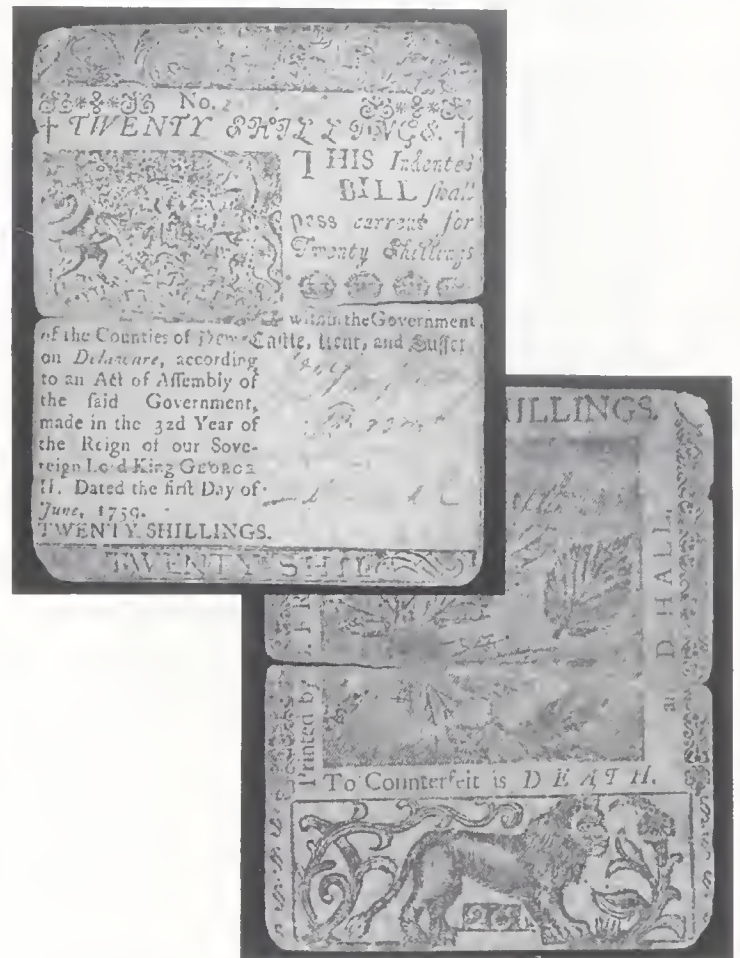 No.
TWENTY SHILLINGS.
THIS Indented
BILL ſhall
paſs current for
Twenty Shillings
within the Government
of the Counties of New-Caſtle, Kent, and Suſſex
on Delaware, according
to an Act of Aſſembly of
the ſaid Government,
made in the 32d Year of
the Reign of our Sove-
reign Lord King GEORGE
II. Dated the firſt Day of
June, 1759.
TWENTY SHILLINGS.
TWENTY SHIL
HILLINGS.
Printed by B. FR
D HALL.
To Counterfeit is DEATH.